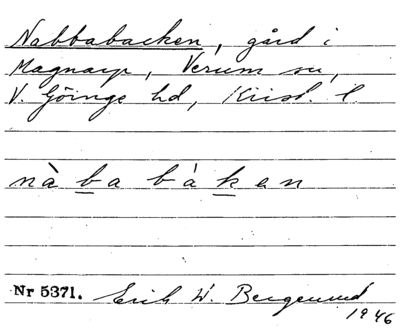 Nabbabacken, gård i
Magnarp, Verum sn,
V. Göinge hd, Krist. l
nàba bákan
Nr 5371. Erik W. Bergenund
1946